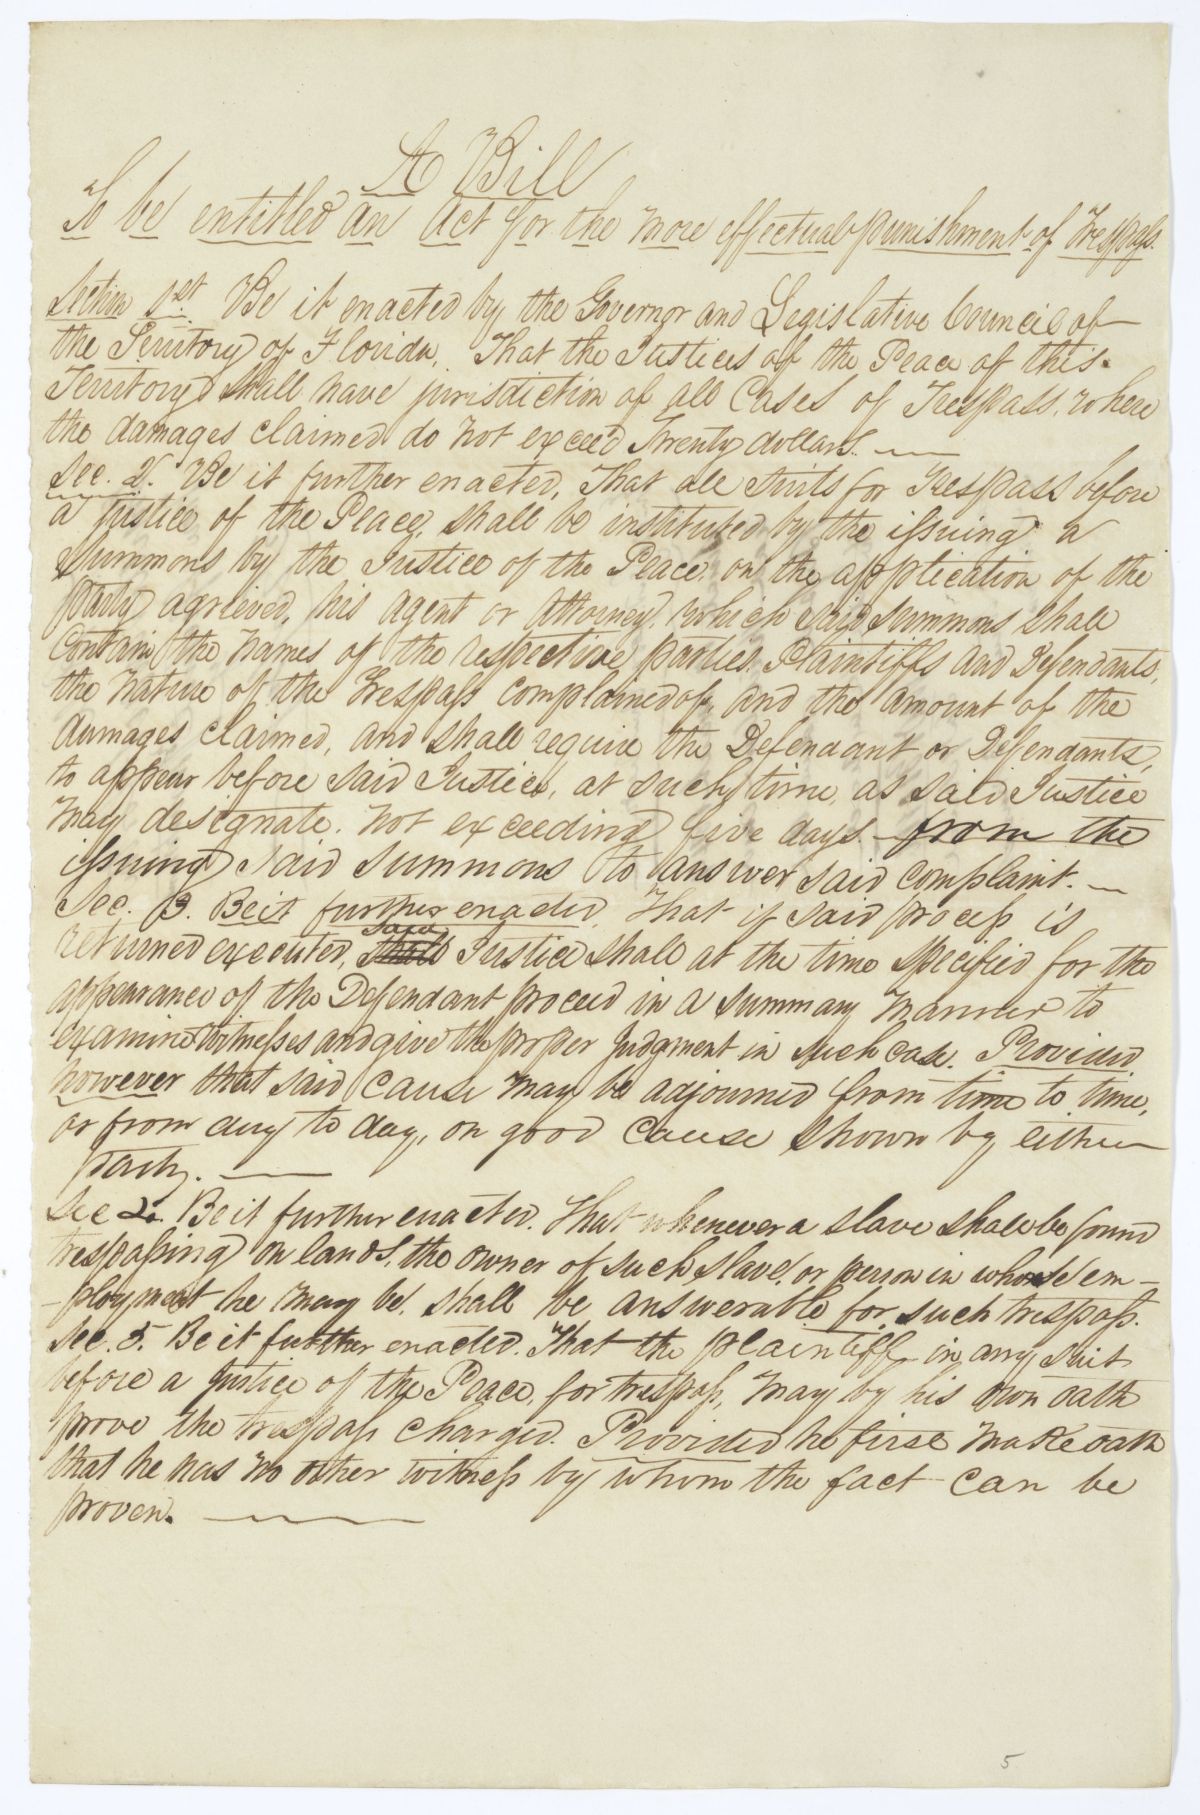 A Bill
To be entitled an act for the more effectual punishment of Trespass.
Section 1st. Be it enacted by the Governor and Legislative Council of
the Territory of Florida, That the Justices of the Peace of this
Territory shall have jurisdiction of all Cases of Trespass, where
the damages claimed do not exceed Twenty dollars. —
Sec. 2. Be it further enacted, That all Suits for Trespass before
a Justice of the Peace, shall be instituted by the issuing a
Summons by the Justice of the Peace, on the application of the
party agrieved, his agent or Attorney, which said summons shall
Contain the names of the respective parties Plaintiffs and Defendants,
the nature of the Trespass complained of, and the amount of the
damages claimed, and shall require the Defendant or Defendants,
to appear before said Justice, at such time, as said Justice
may designate, not exceeding five days from the
issuing said summons to answer said complaint. —
Sec. 3. Be it further enacted, That if said process is
returned executed, shall said Justice shall at the time specified for the
appearance of the Defendant proceed in a summary manner to
examine Witnesses and give the proper Judgment in such case. Provided
however that said cause may be adjourned from time to time,
or from day to day, on good cause shown by either
party. —
Sec 4. Be it further enacted. That whenever a slave shall be found
trespassing on lands, the owner of such slave, or person in whose em-
-ployment he may be, shall be answerable for such trespass.
Sec. 5. Be it further enacted. That the plaintiff in any suit
before a Justice of the Peace, for trespass, may by his own oath
prove the trespass charged. Provided he first make oath
that he has no other witness by whom the fact can be
proven. —
5